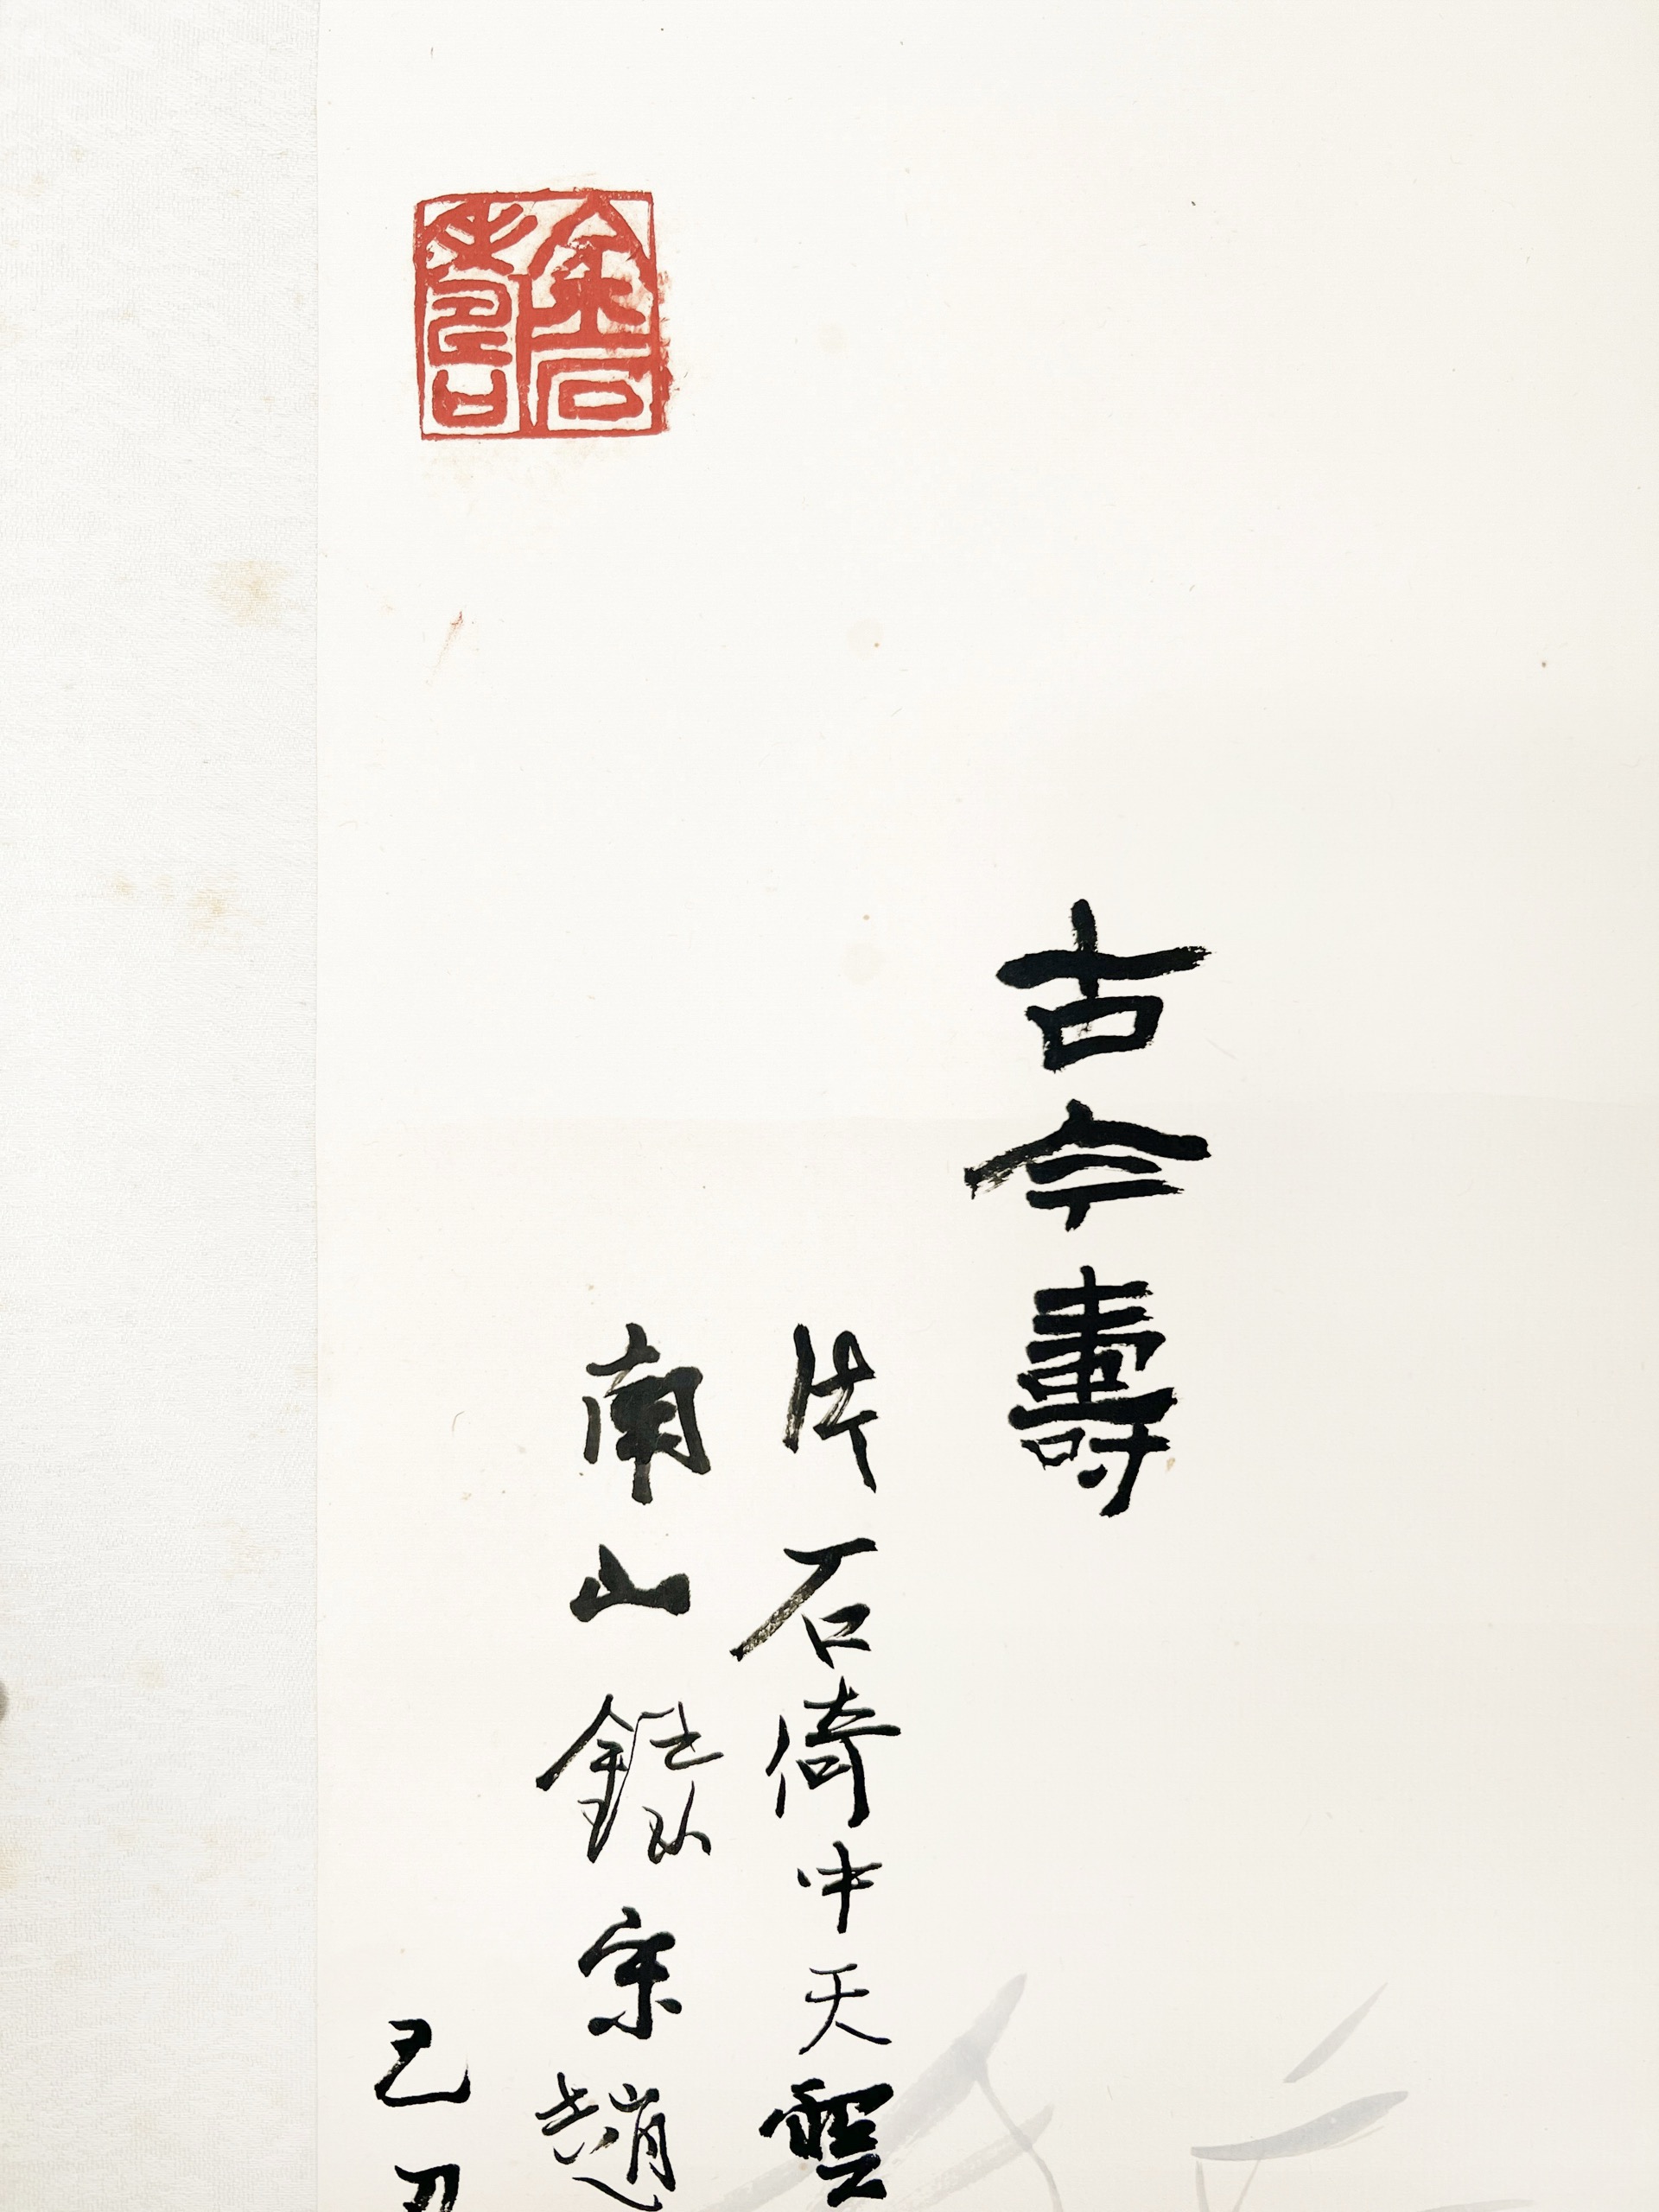 古今壽
片石倚中天雲
南山錄宋趙
己丑
金石壽